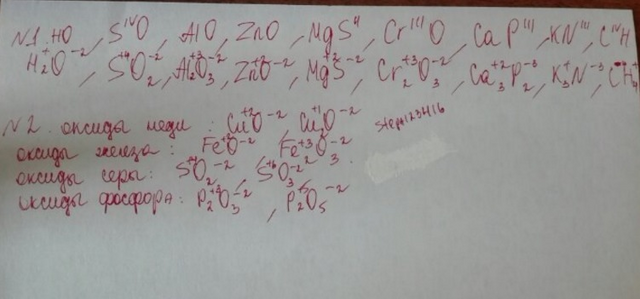 N1. HO, S^IV O, AlO, ZnO, MgS^II, Cr^III O, CaP^III, KN^III, C^IV H
H₂⁺O⁻², S⁺⁴O₂⁻², Al₂⁺³O₃⁻², Zn⁺²O⁻², Mg⁺²S⁻², Cr₂⁺³O₃⁻², Ca₃⁺²P₂⁻³, K₃⁺N⁻³, C⁻⁴H₄⁺
N2. оксиды меди: Cu⁺²O⁻², Cu₂⁺¹O⁻² Stepa123H16
оксиды железа: Fe⁺²O⁻², Fe₂⁺³O₃⁻²
оксиды серы: S⁺⁴O₂⁻², S⁺⁶O₃⁻².
оксиды фосфора: P₂⁺³O₃⁻², P₂⁺⁵O₅⁻²